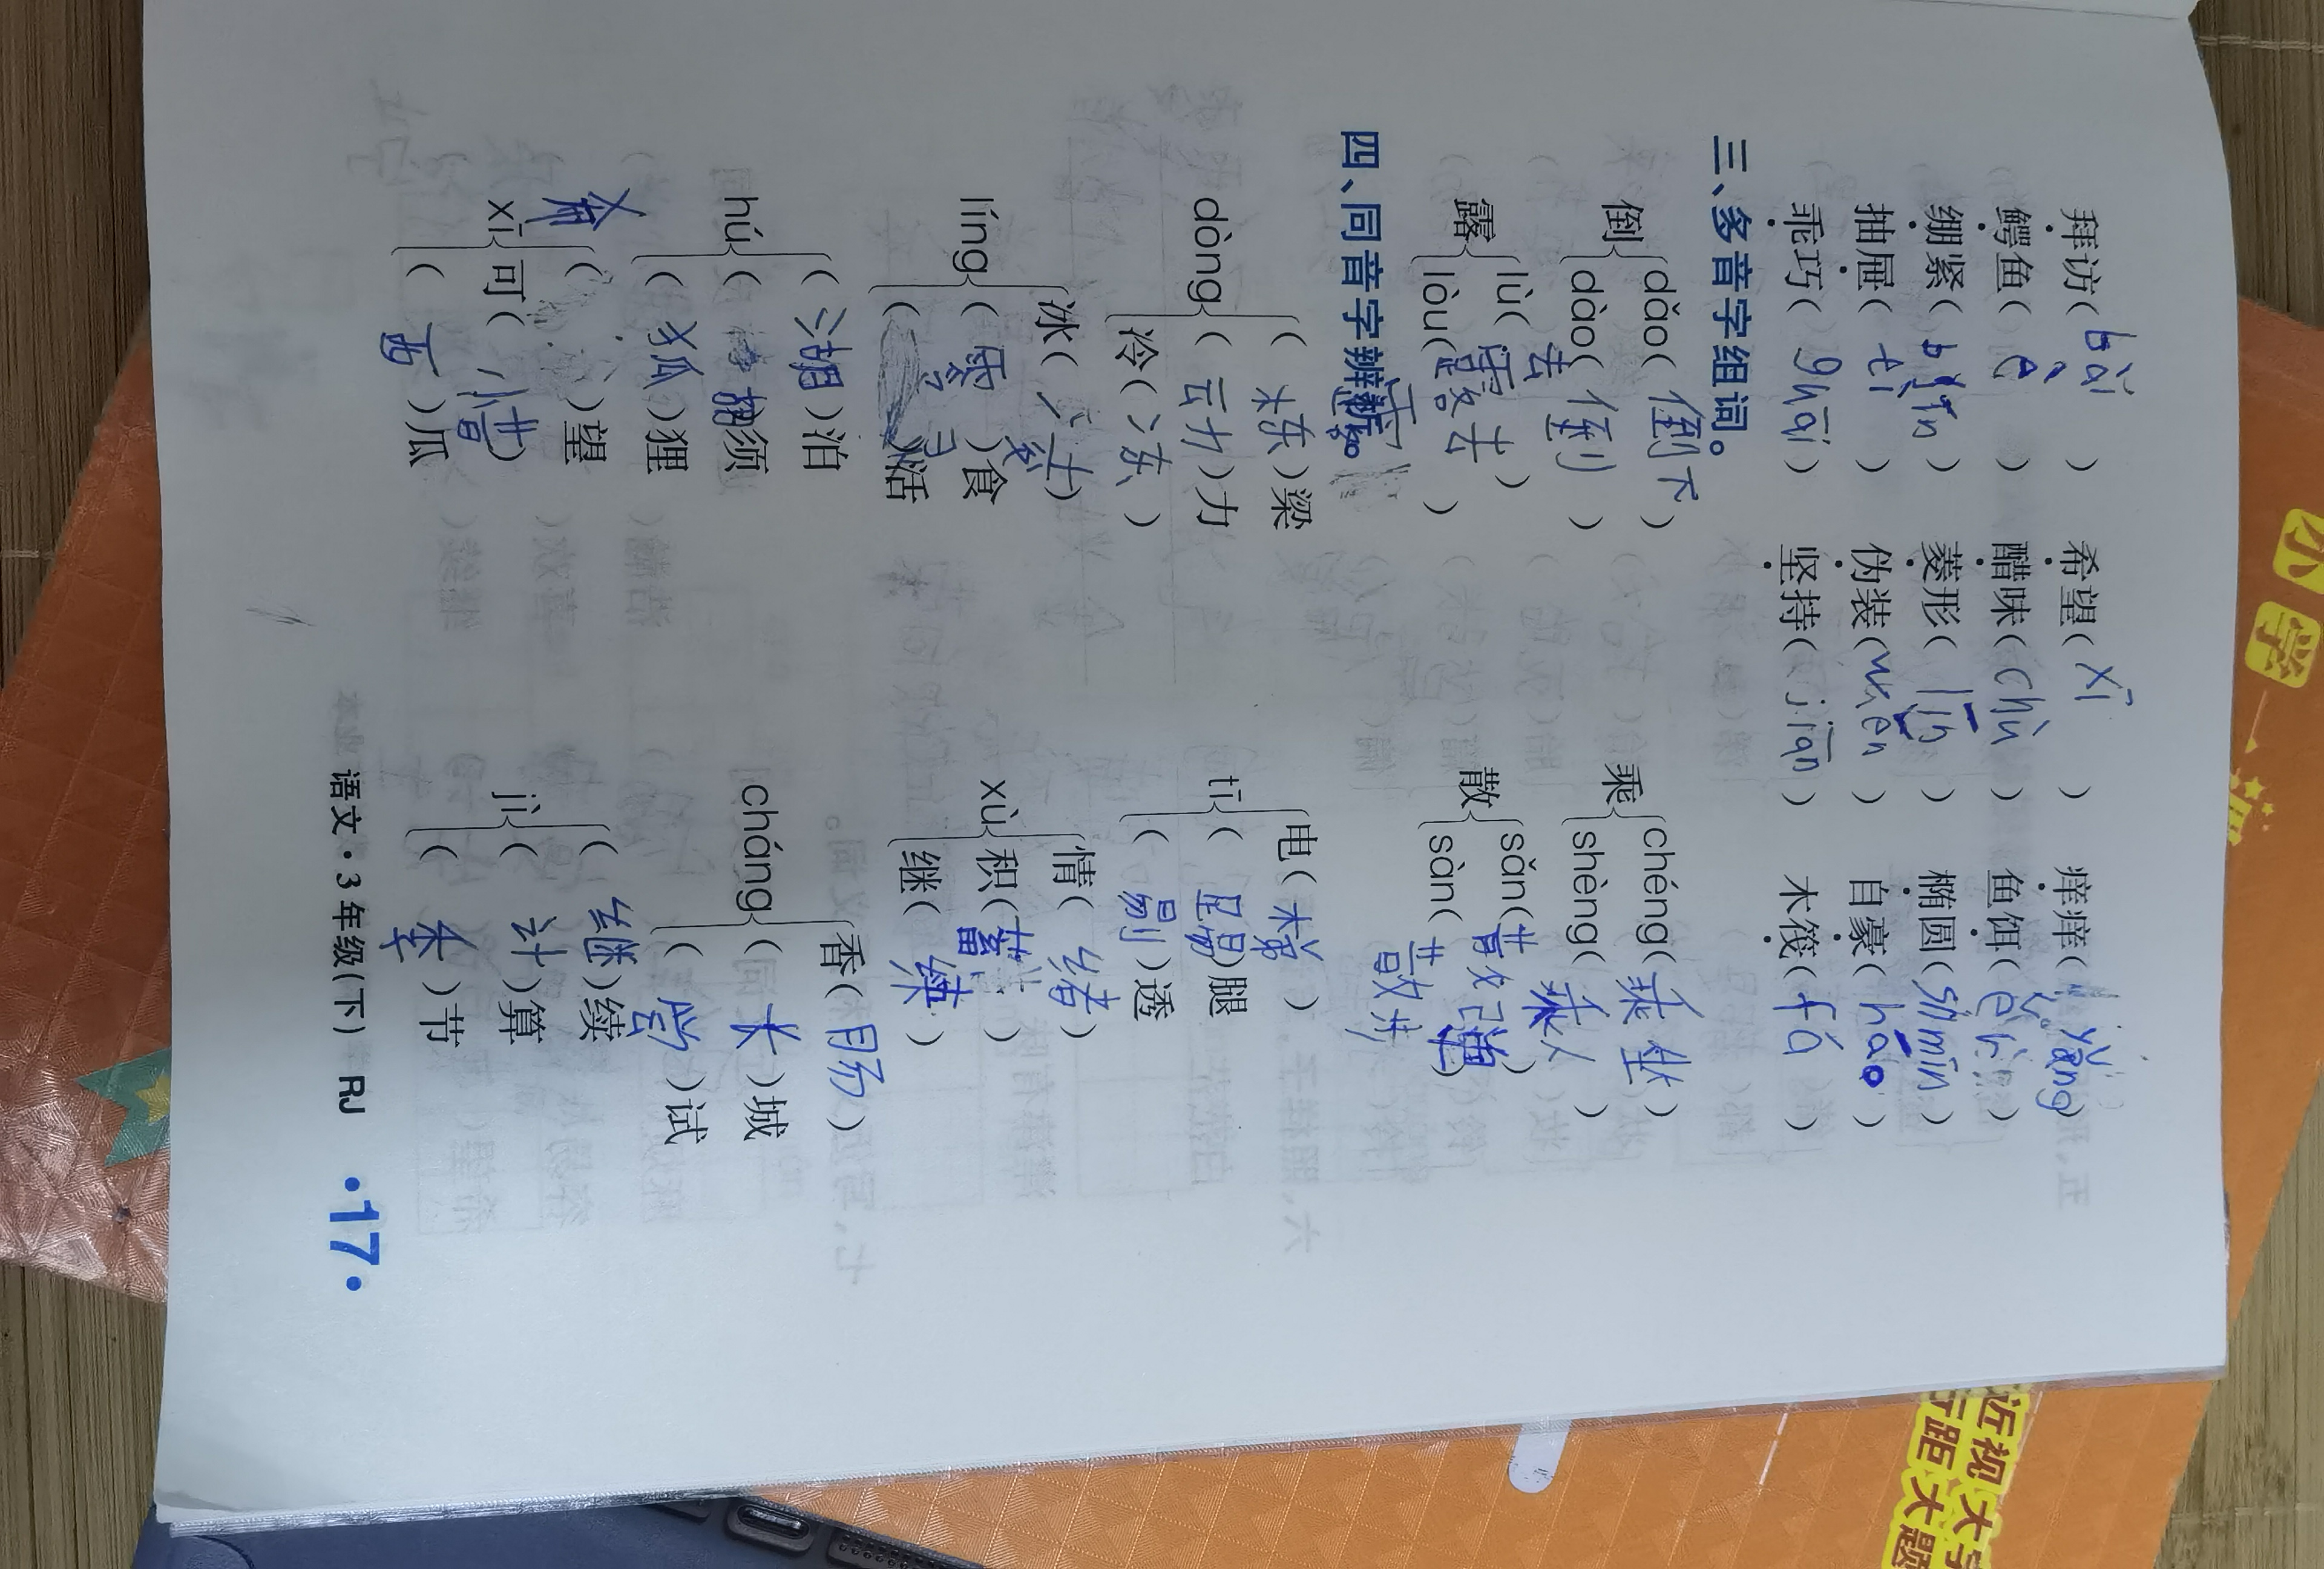 拜访(bài) 希望(xī) 痒痒(yǎng)
鳄鱼(è) 醋味(chù) 鱼饵(ěr)
绷紧( ) 菱形(lín) 椭圆( )
抽屉(tì) 伪装( ) 自豪(háo)
乖巧(guāi) 坚持(jiān) 木筏(fá)
三、多音字组词。
倒 dǎo(倒下) 乘 chéng(乘坐)
dào(倒) shèng(乘人)
露 lù( ) 散 sǎn( )
lòu(露出) sàn(散步)
四、同音字辨析。
dòng (栋)梁 tī 电(梯)
(动)力 (踢)腿
冷(冻) (剔)透
líng 冰( ) xù 情(绪)
(零)食 积(蓄)
( )活 继(续)
hú (湖)泊 cháng 香(肠)
(胡)须 (长)城
(狐)狸 (尝)试
xī ( )望 jì (继)续
可(惜) (计)算
(西)瓜 (季)节
语文·3年级(下) RJ ·17·
小学
近视
行距 大题